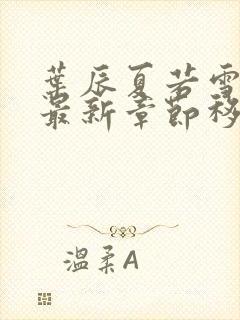 葉辰夏若雪
最新章節移
温柔A